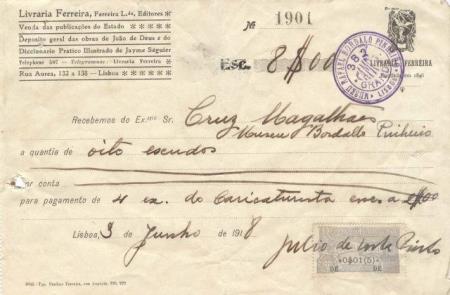 Livraria Ferreira, Ferreira L.da, Editores
Venda das publicações do Estado
Deposito geral das obras de João de Deus e do
Diccionario Pratico Illustrado de Jayme Séguier
Telephone 597 — Telegrammas: Livraria Ferreira
Rua Aurea, 132 a 138 — Lisboa
№ 1901
ESC. 8$00
LIVRARIA FERREIRA
Recebemos do Ex.mo Sr. Cruz Magalhaes
Museu Bordallo Pinheiro
a quantia de oito escudos
por conta
para pagamento de 4 ex. do Caricaturista
Lisboa, 3 de Junho de 1918
Julio de